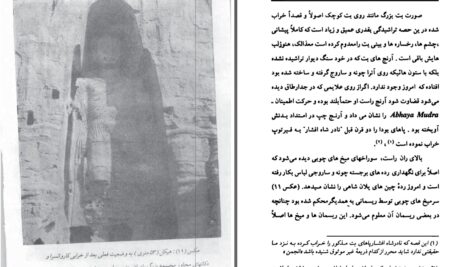 صورت بت بزرگ مانند روی بت کوچک اصولاً و قصداً خراب
شده در این حصه تراشیدگی بقدری عمیق و زیاد است که کاملاً پیشانی
،چشم ها، رخساره ها و بینی بت رامعدوم کرده است معذالک، هنوزلب
هایش باقی است . آرنج های بت که در خود سنگ دیوار تراشیده نشده
بلکه با ستون هائیکه روی آنرا چونه و ساروج گرفته و ساخته شده بود
افتاده که امروز وجود ندارد. اگراز روی علایمی که در جدارطاق دیده
می‌شود قضاوت شود آرنج راست او حتماًبلند بوده و حرکت اطمینان ،
Abhaya Mudra را نشان می داد و آرنج چپ در امتداد بدنش
آویخته بود . پاهای بودا را دو قرن قبل "نادر شاه افشار" به فیرتوپ
خراب نموده است (۱) ، (۰).
بالای ران راست، سوراخهای میخ های چوبی دیده می‌شود که
اصلاً برای نگهداری رده های برجسته چونه و ساروجی لباس بکار رفته
و امروز ردهٔ چین های پلان شاهی را نشان میدهد. (عکس ۱۱)
سرمیخ های چوبی توسط ریسمانی به همدیگرمحکم شده بود چنانچه
در بعضی ریسمان آن معلوم می‌شود. این ریسمان ها و میخ ها اصلاً
(۱) این قصه که نادرشاه افشارپاهای بت مذکور را خراب کرده نزد ما
حقیقتی ندارد شاید محرر ازکدام منبع غیر موثق شنیده باشد «انجمن»
عکس (۱۱) : هیکل (۵۳ متری ) به وضعیت فعلی بعد از خرابی کاروانسرا و